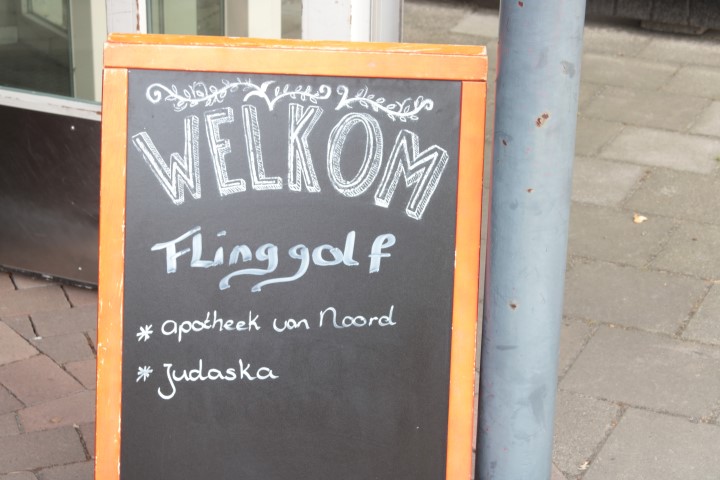 WELKOM
Flinggolf
* apotheek van Noord
* Judaska